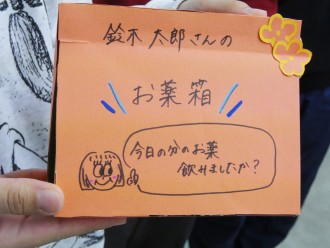 鈴木太郎さんの
お薬箱
今日の分のお薬
飲みましたか？